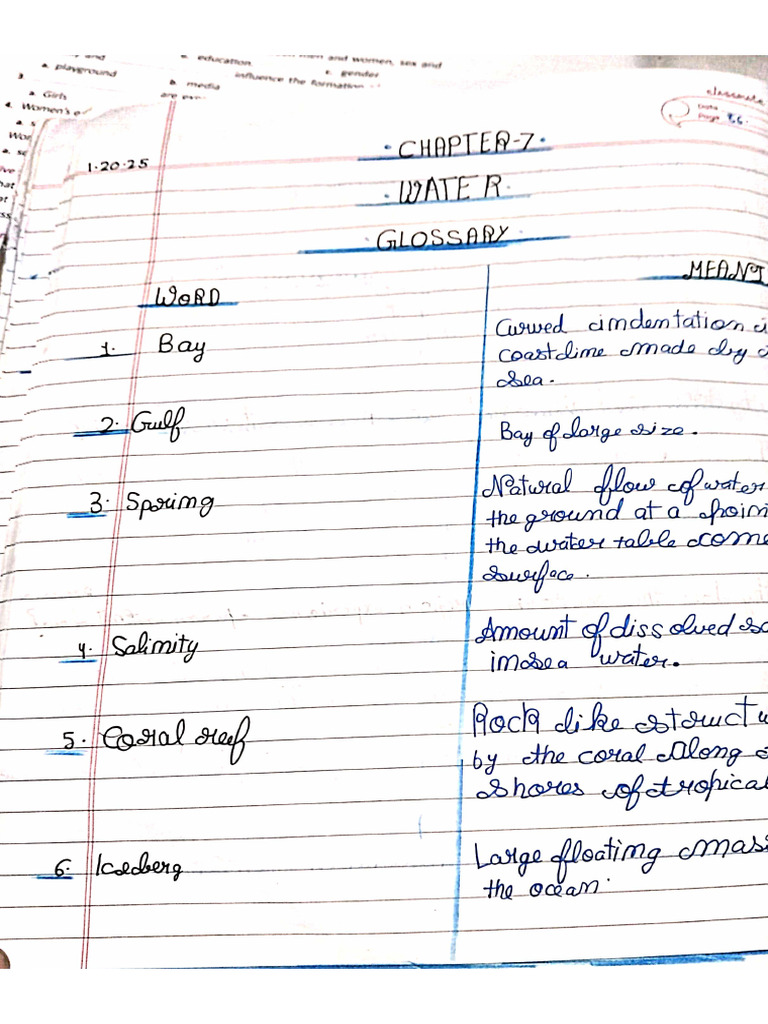 a. playground
education.
and women, sex and
c. gender
b. media
influence the formation
3.
a. Girls
are
4. Women's
a. s
classmate
Date
Page 86.
1.20.25
CHAPTER-7.
WATER.
GLOSSARY
WORD
MEANI
1. Bay
Curved indentation
coastline made by
sea.
2. Gulf
Bay of large size.
3. Spring
Natural flow of water
the ground at a poin
the water table come
surface.
4. Salinity
Amount of dissolved sa
in sea water.
5. Coral reef
Rock like structu
by the coral along
shores of tropical
6. Iceberg
Large floating mas
the ocean.